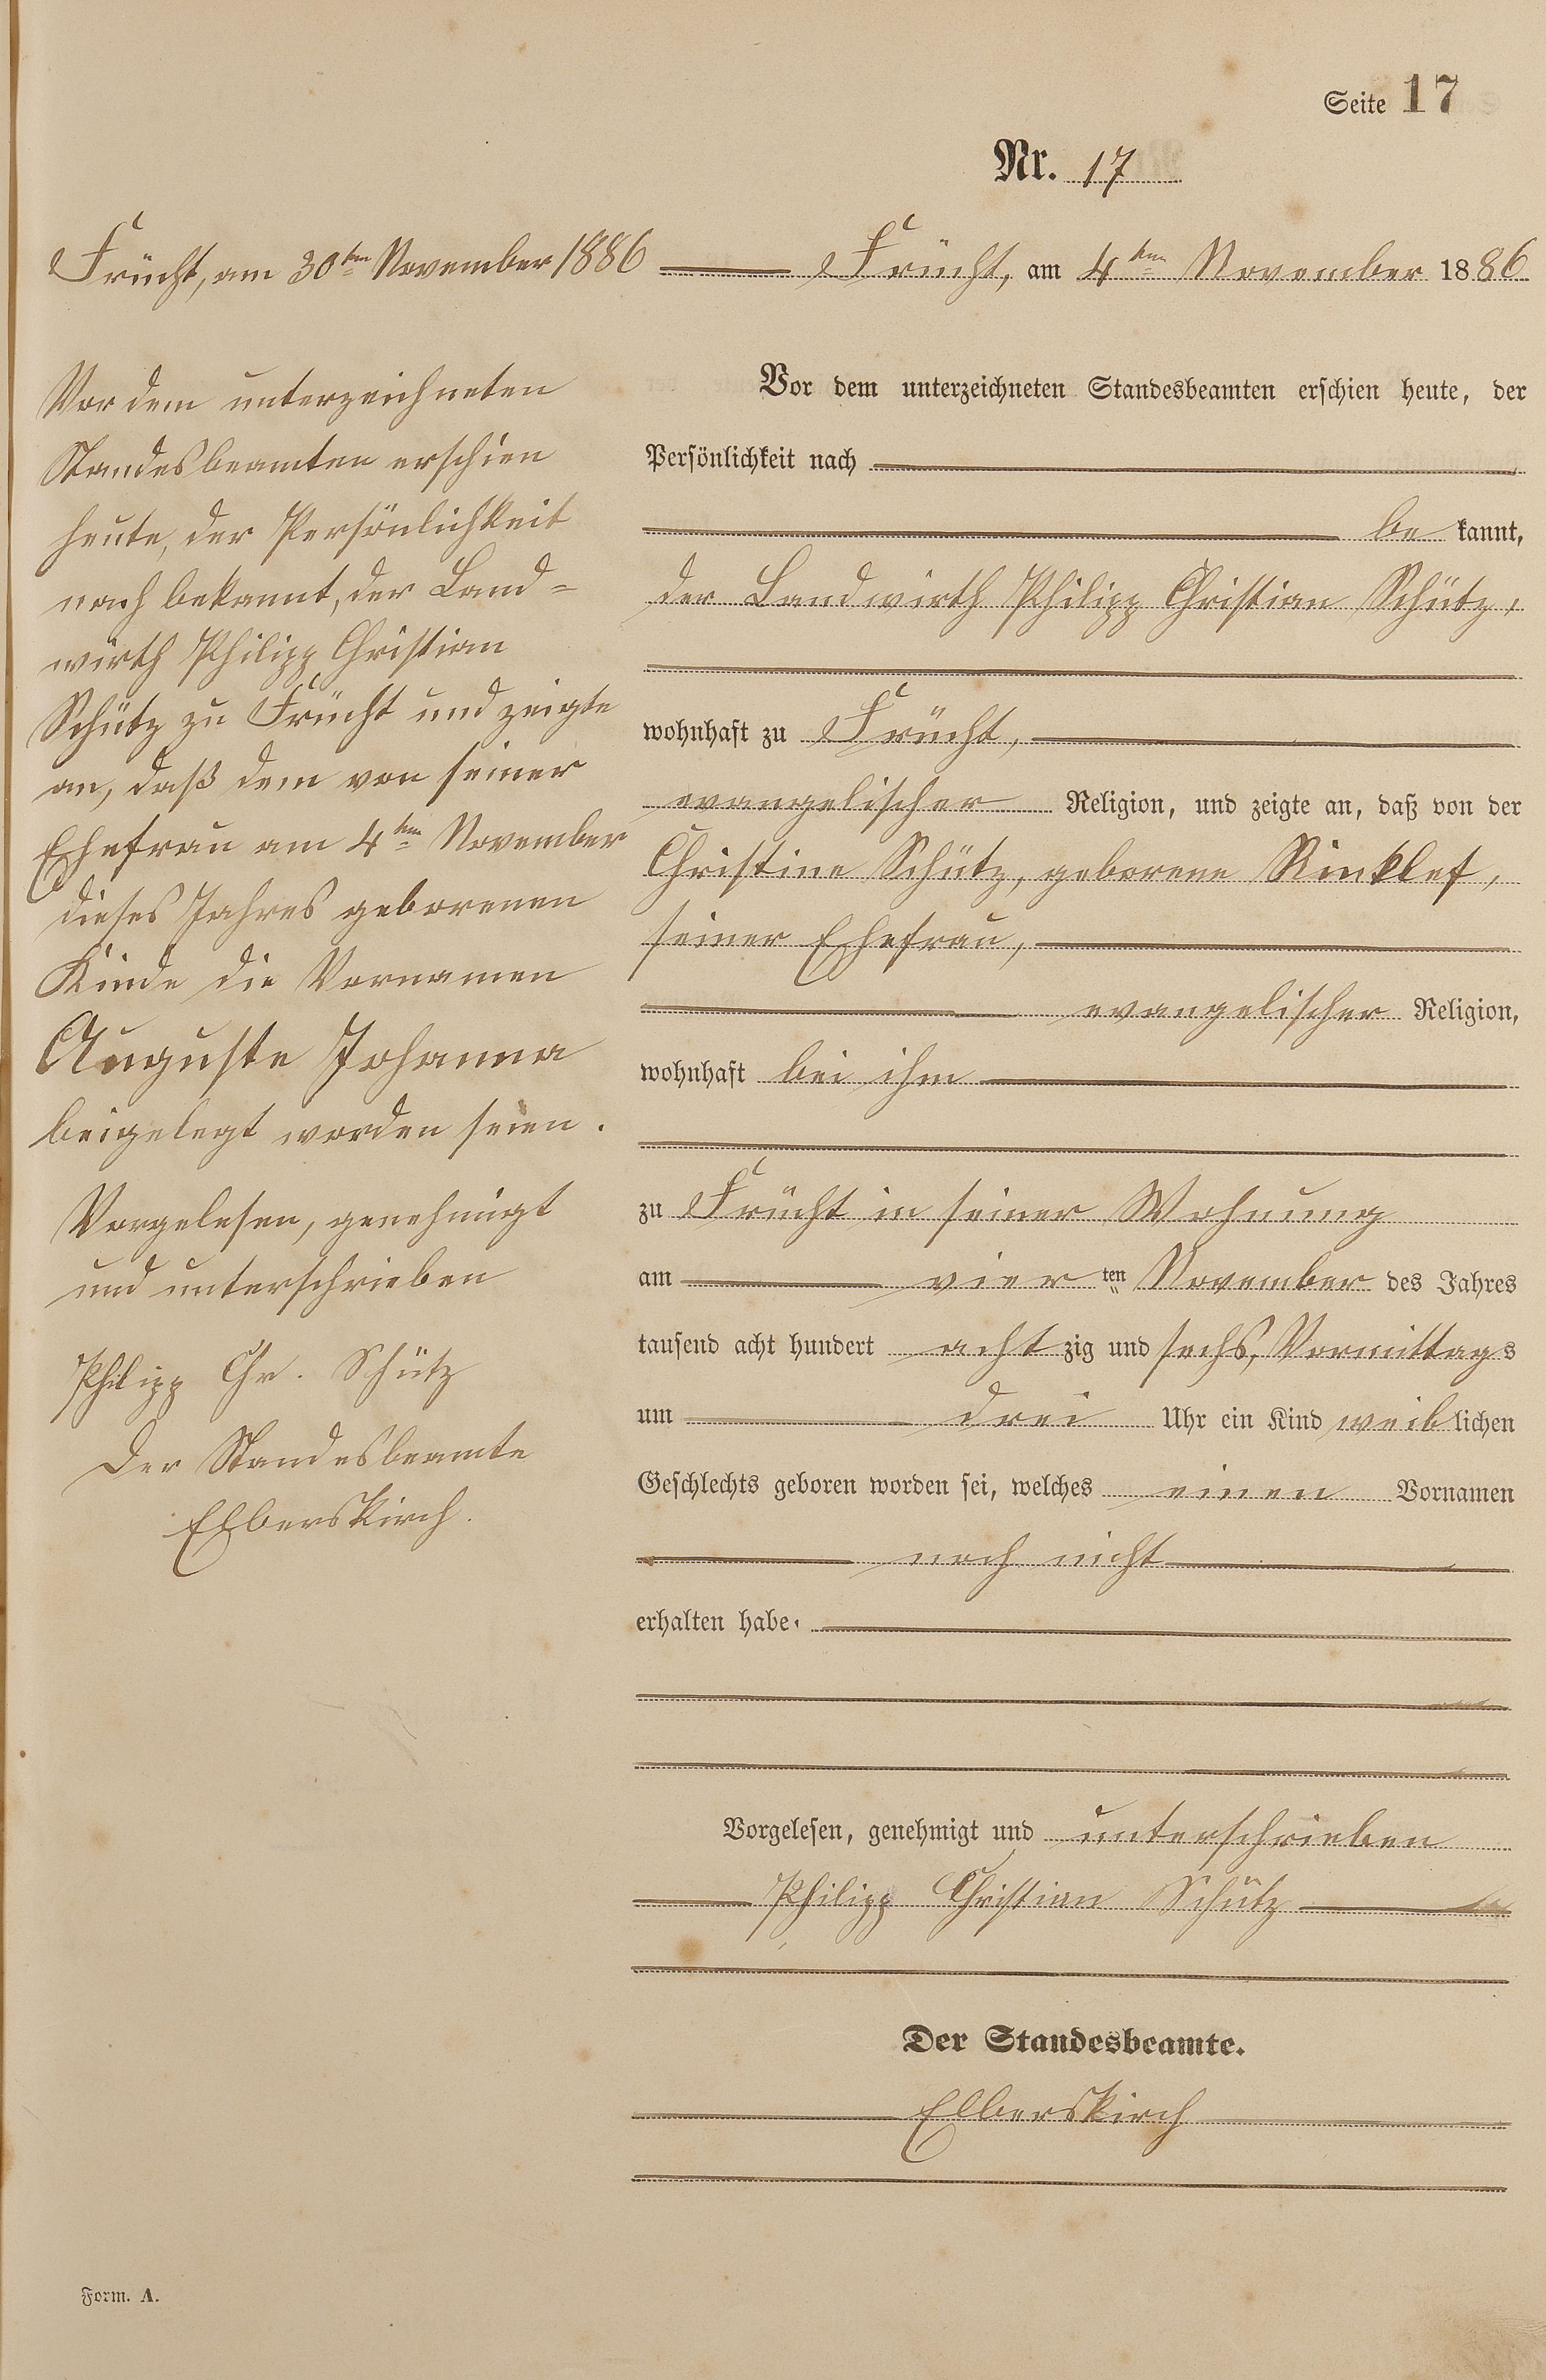 Seite 17
Nr. 17
Frücht, am 30ten November 1886
Vor dem unterzeichneten
Standesbeamten erschien
heute, der Persönlichkeit
nach bekannt, der Land=
wirth Philipp Christian
Schütz zu Frücht und zeigte
an, daß dem von seiner
Ehefrau am 4ten November
dieses Jahres geborenen
Kinde die Vornamen
Auguste Johanna
beigelegt worden seien.
Vorgelesen, genehmigt
und unterschrieben
Philipp Chr. Schütz
Der Standesbeamte
Elberskirch.
Frücht, am 4ten November 1886
Vor dem unterzeichneten Standesbeamten erschien heute, der
Persönlichkeit nach
be kannt,
der Landwirth Philipp Christian Schütz,
wohnhaft zu Frücht,
evangelischer Religion, und zeigte an, daß von der
Christine Schütz, geborene Rinklef,
seiner Ehefrau,
evangelischer Religion,
wohnhaft bei ihm
zu Frücht in seiner Wohnung
am vier ten November des Jahres
tausend acht hundert acht zig und sechs, Vormittags
um drei Uhr ein Kind weiblichen
Geschlechts geboren worden sei, welches einen Vornamen
noch nicht
erhalten habe.
Vorgelesen, genehmigt und unterschrieben
Philipp Christian Schütz
Der Standesbeamte.
Elberskirch
Form. A.